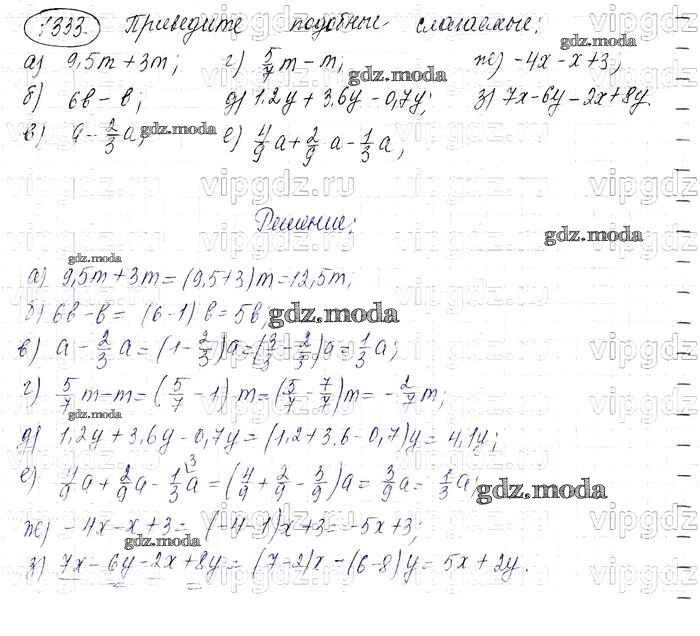 1333. Приведите подобные слагаемые:
а) 9,5m + 3m; г) 5/7 m - m; ж) -4x - x + 3;
б) 6b - b; д) 1,2y + 3,6y - 0,7y; з) 7x - 6y - 2x + 8y.
в) a - 2/3 a; е) 4/9 a + 2/9 a - 1/3 a;
Решение:
а) 9,5m + 3m = (9,5 + 3)m = 12,5m;
б) 6b - b = (6 - 1) b = 5b;
в) a - 2/3 a = (1 - 2/3)a = (3/3 - 2/3)a = 1/3 a;
г) 5/7 m - m = (5/7 - 1) m = (5/7 - 7/7)m = - 2/7 m;
д) 1,2y + 3,6y - 0,7y = (1,2 + 3,6 - 0,7)y = 4,1y;
е) 4/9 a + 2/9 a - 1/3 a = (4/9 + 2/9 - 3/9)a = 3/9 a = 1/3 a;
ж) -4x - x + 3 = (-4 - 1)x + 3 = -5x + 3;
з) 7x - 6y - 2x + 8y = (7 - 2)x - (6 - 8)y = 5x + 2y.